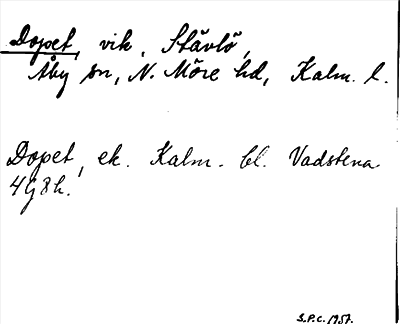 Dopet, vik, Stävlö,
Åby sn, N. Möre hd, Kalm. l.
Dopet, ek. Kalm. bl. Vadstena
4G8h.
S.P.C. 1957.